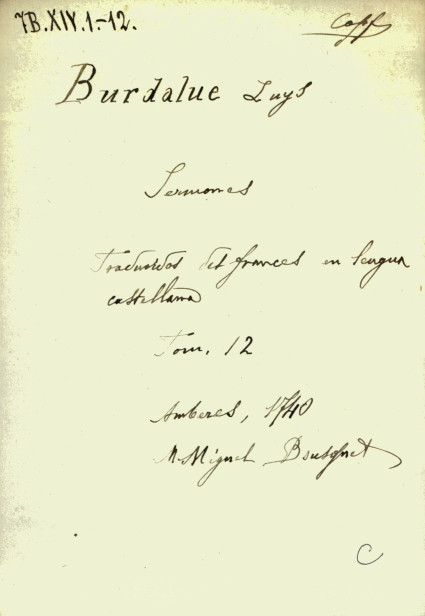 7B.XIV.1-12.
Burdalue Luys
Sermones
Traducidos del frances en lengua
castellana
Tom. 12
Amberes, 1740
M. Miguel Bousquet
C